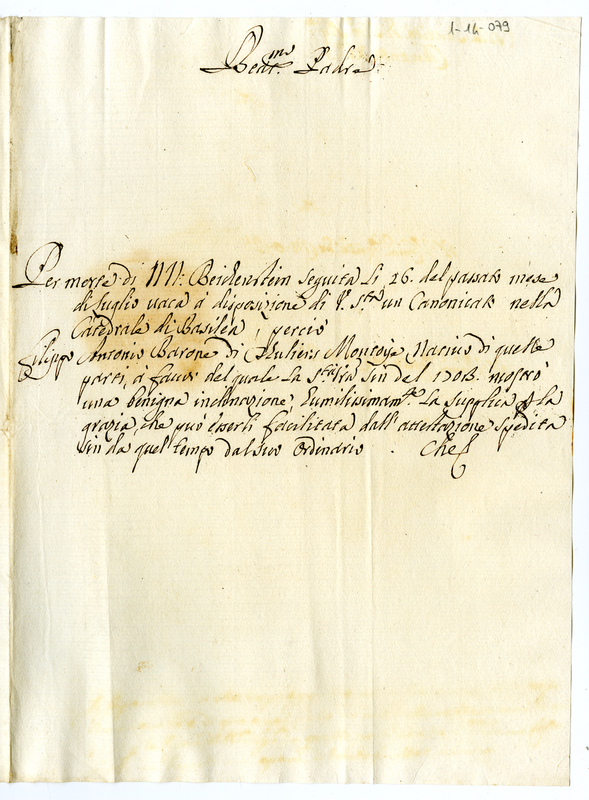 1-14-079
Beat.mo Padre
Per morte di NN: Beidenstein seguita li 26. del passato mese
di luglio vaca à disposizione di V. S.tà un Canonicato nella
Catedrale di Basilea; perciò
Filippo Antonio Barone di Montoye, Nativo di quelle
parti, à favor del quale la S.tà Vrã sin del 1708. mostrò
una benigna inclinazione, Humilissimam.te La supplica p la
grazia, che può esserli facilitata dall'attestazione spedita
sin da quel tempo dal suo Ordinario. Che